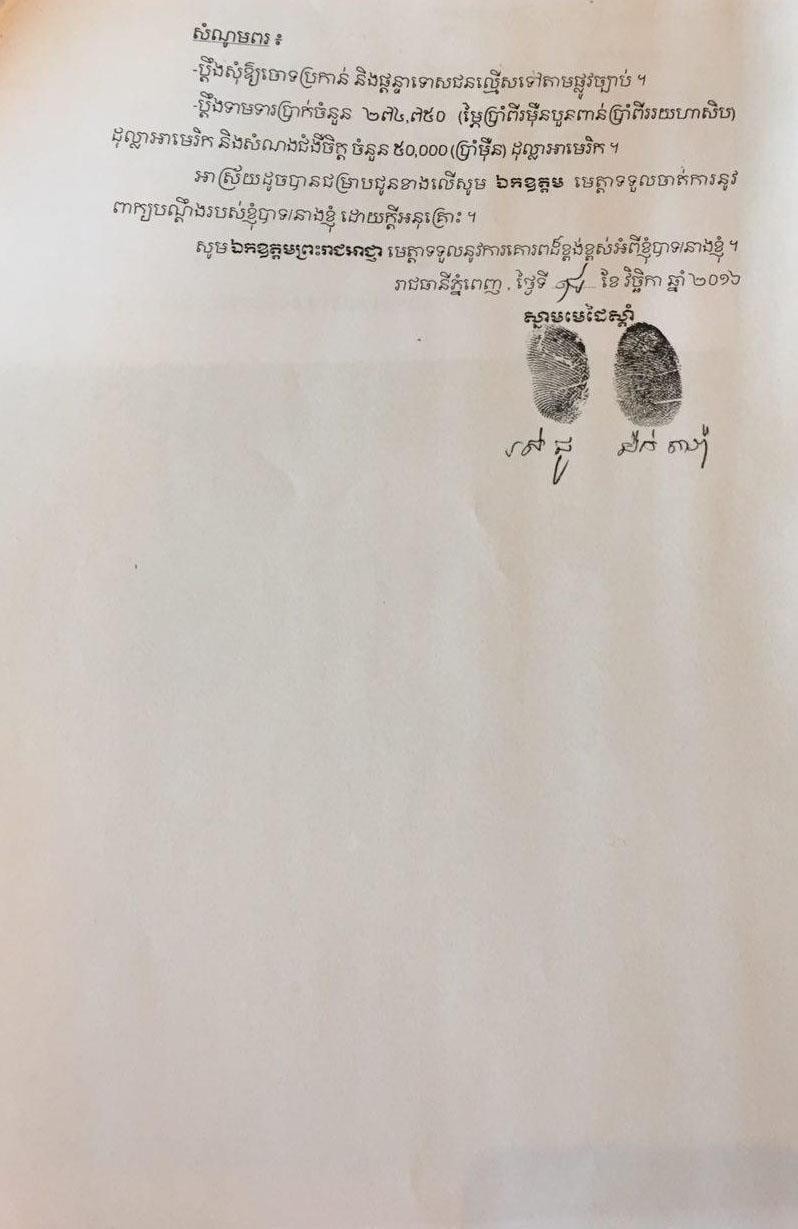 សំណូមពរ ៖
-ប្ដឹងសុំឱ្យចោទប្រកាន់ និងផ្ដន្ទាទោសជនល្មើសទៅតាមផ្លូវច្បាប់ ។
-ប្ដឹងទាមទារប្រាក់ចំនួន ២៧៤,៧៥០ (ម្ភៃប្រាំពីរម៉ឺនបួនពាន់ប្រាំពីររយហាសិប)
ដុល្លាអាមេរិក និងសំណងជំងឺចិត្ត ចំនួន ៥០,០០០ (ប្រាំម៉ឺន) ដុល្លាអាមេរិក ។
អាស្រ័យដូចបានជម្រាបជូនខាងលើសូម ឯកឧត្តម មេត្តាទទួលចាត់ការនូវ
ពាក្យបណ្ដឹងរបស់ខ្ញុំបាទ/នាងខ្ញុំ ដោយក្ដីអនុគ្រោះ ។
សូម ឯកឧត្តមព្រះរាជអាជ្ញា មេត្តាទទួលនូវការគោរពដ៏ខ្ពង់ខ្ពស់អំពីខ្ញុំបាទ/នាងខ្ញុំ ។
រាជធានីភ្នំពេញ , ថ្ងៃទី ខែ វិច្ឆិកា ឆ្នាំ ២០១៦
ស្នាមមេដៃស្ដាំ